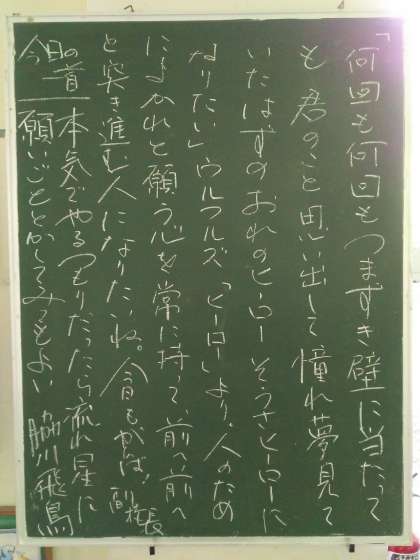 「何回も何回もつまずき壁に当たって
も君のこと思い出して憧れ夢見て
いたはずのおれのヒーローそうさヒーローに
なりたい」ウルフルズ「ヒーロー」より。人のため
によかれと願う心を常に持って、前へ前へ
と突き進む人になりたいね。今日もがんば！副校長
今日の首 本気でやるつもりだったら流れ星に
願いごととかしてみつもよい 脇川飛鳥